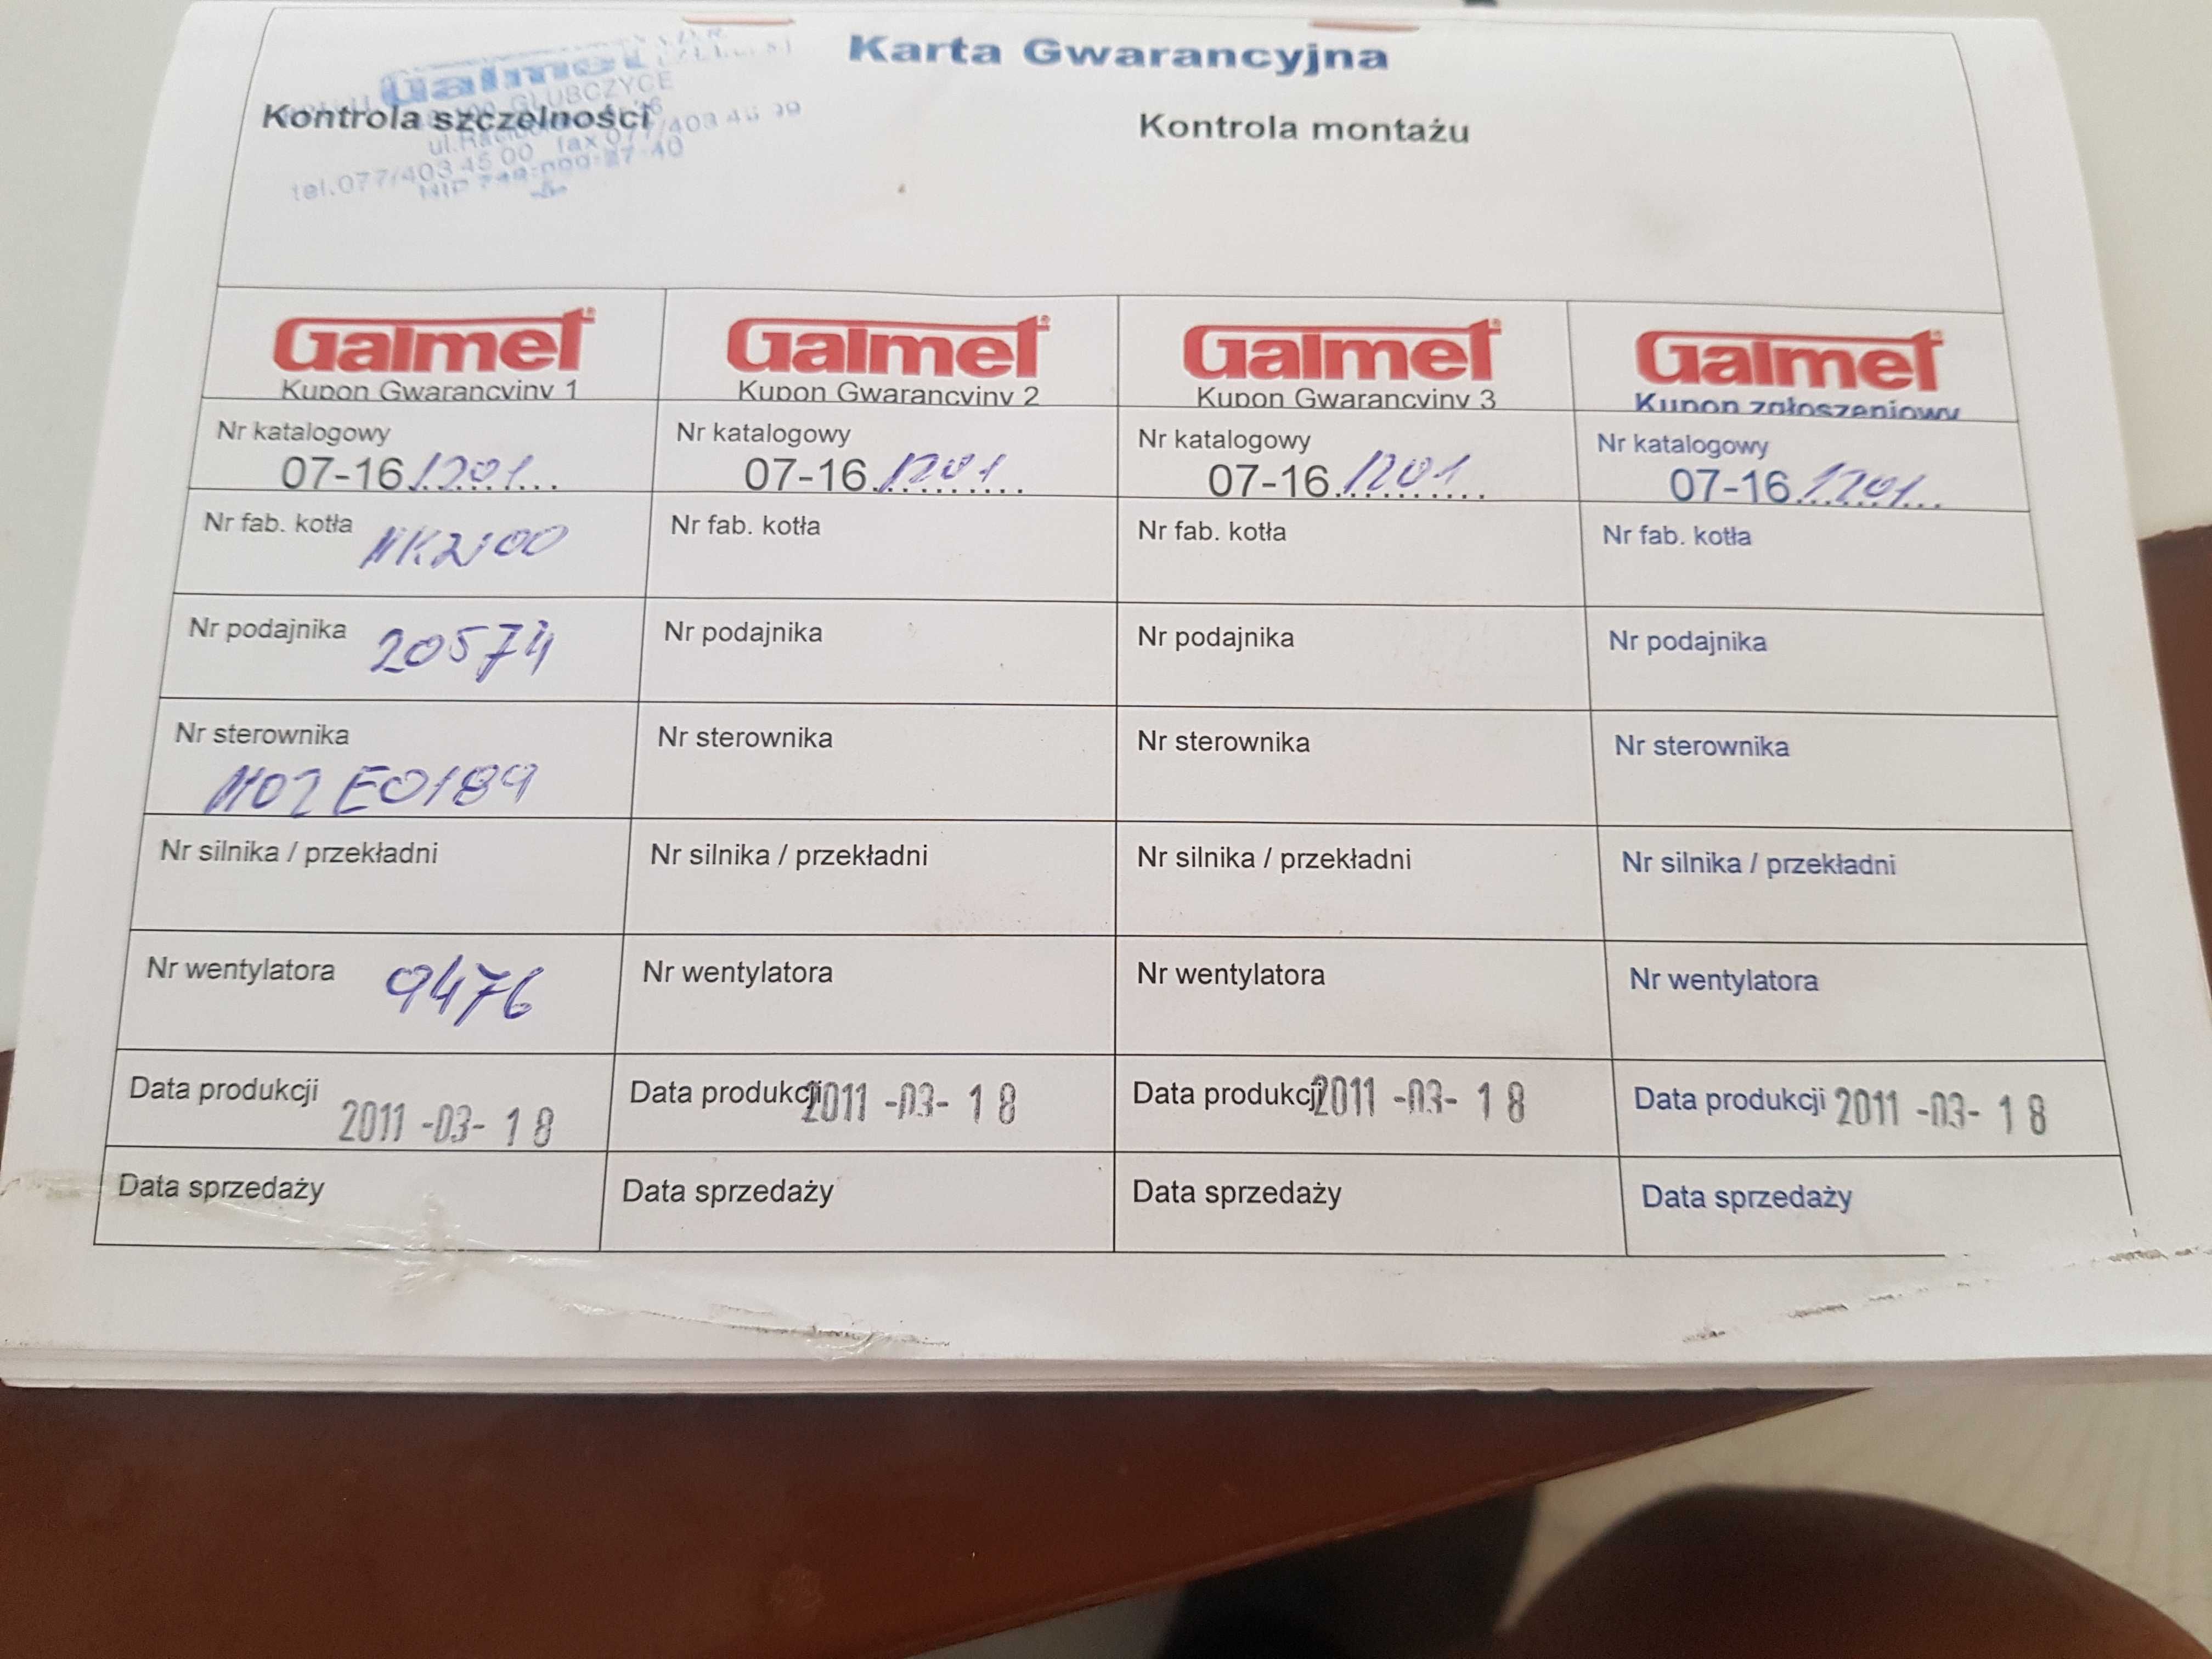 Karta Gwarancyjna
Galmet
GŁUBCZYCE
Kontrola szczelności
Kontrola montażu
tel.077/403 45 00 fax 077/403 45 99
Galmet® Galmet® Galmet® Galmet®
Kupon Gwarancyjny 1 Kupon Gwarancyjny 2 Kupon Gwarancyjny 3 Kupon zgłoszeniowy
Nr katalogowy Nr katalogowy Nr katalogowy Nr katalogowy
07-16.1201... 07-16.1201... 07-16.1201... 07-16.1201...
Nr fab. kotła Nr fab. kotła Nr fab. kotła Nr fab. kotła
Nr podajnika 20574 Nr podajnika Nr podajnika Nr podajnika
Nr sterownika Nr sterownika Nr sterownika Nr sterownika
Nr silnika / przekładni Nr silnika / przekładni Nr silnika / przekładni Nr silnika / przekładni
Nr wentylatora 9476 Nr wentylatora Nr wentylatora Nr wentylatora
Data produkcji 2011 -03- 18 Data produkcji 2011 -03- 18 Data produkcji 2011 -03- 18 Data produkcji 2011 -03- 18
Data sprzedaży Data sprzedaży Data sprzedaży Data sprzedaży